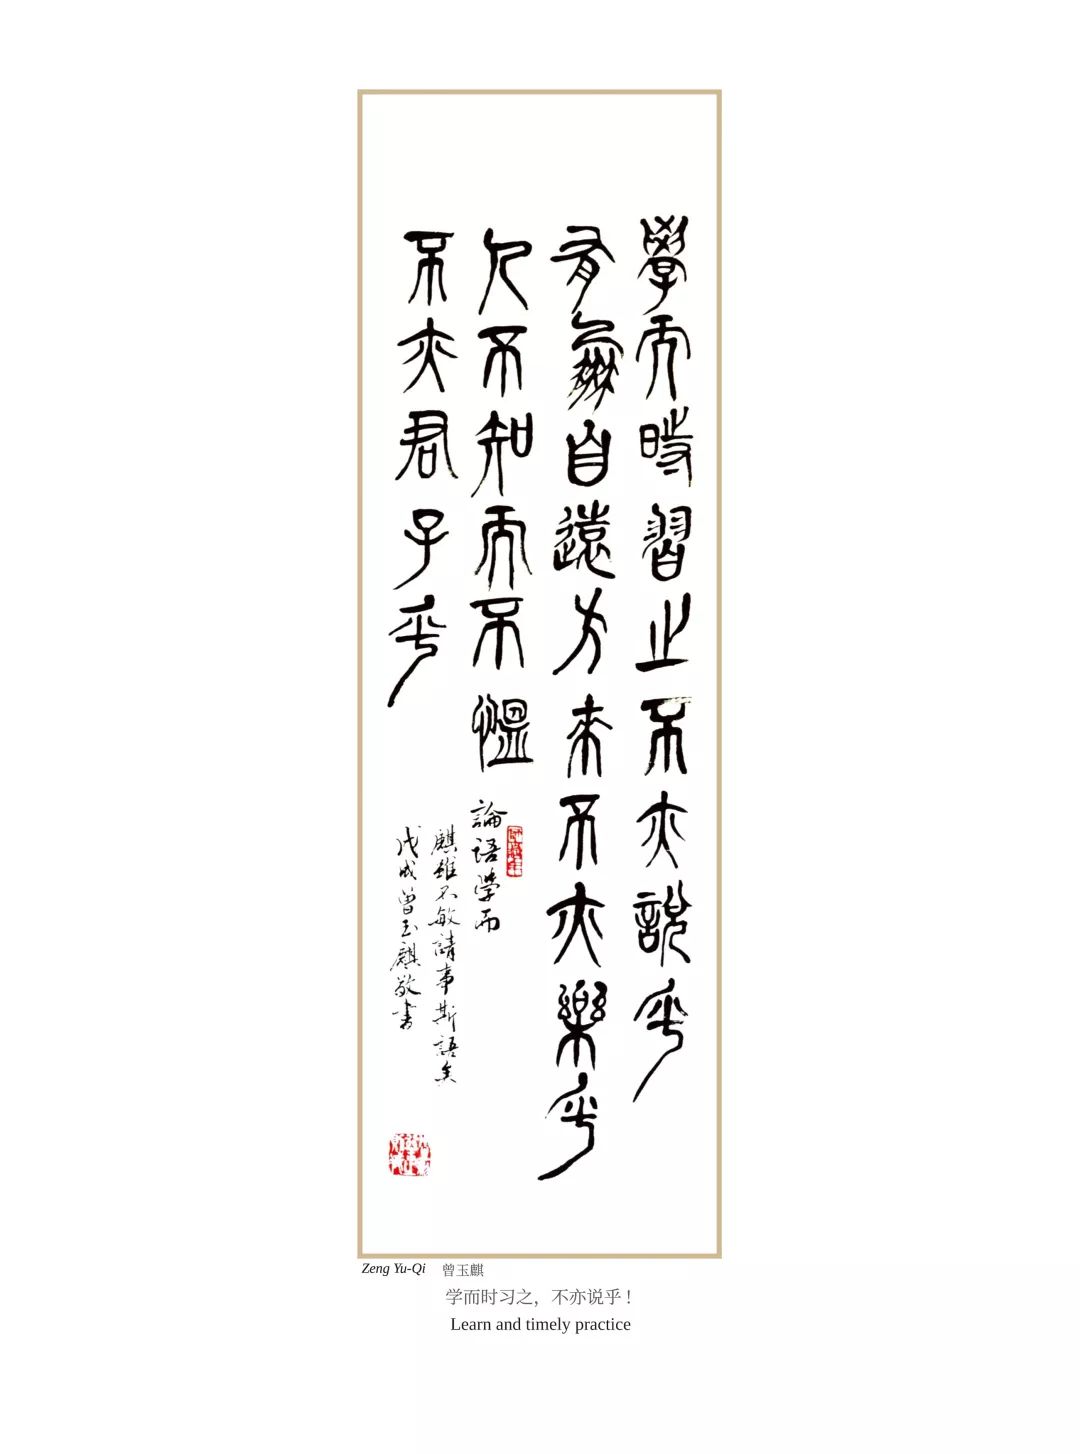 學而時習之不亦說乎
有朋自遠方來不亦樂乎
人不知而不慍
不亦君子乎
論語學而
麒雖不敏請事斯語矣
戊戌曾玉麒敬書
Zeng Yu-Qi 曾玉麒
学而时习之，不亦说乎！
Learn and timely practice